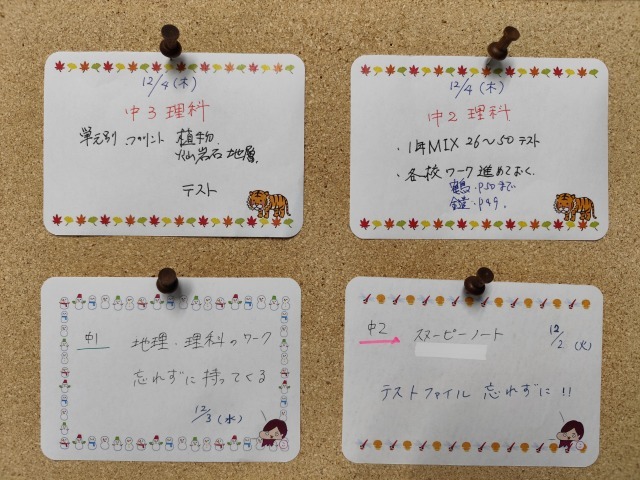 12/4(木)
中3 理科
単元別 プリント 植物
火山岩石 地層
テスト
12/4(木)
中2 理科
・1年MIX 26〜50 テスト
・各校ワーク 進めておく.
鶴. P50まで
P49.
中1
地理・理科のワーク
忘れずに持ってくる
12/3(水)
中2
スヌーピーノート
12/2(火)
テストファイル 忘れずに!!